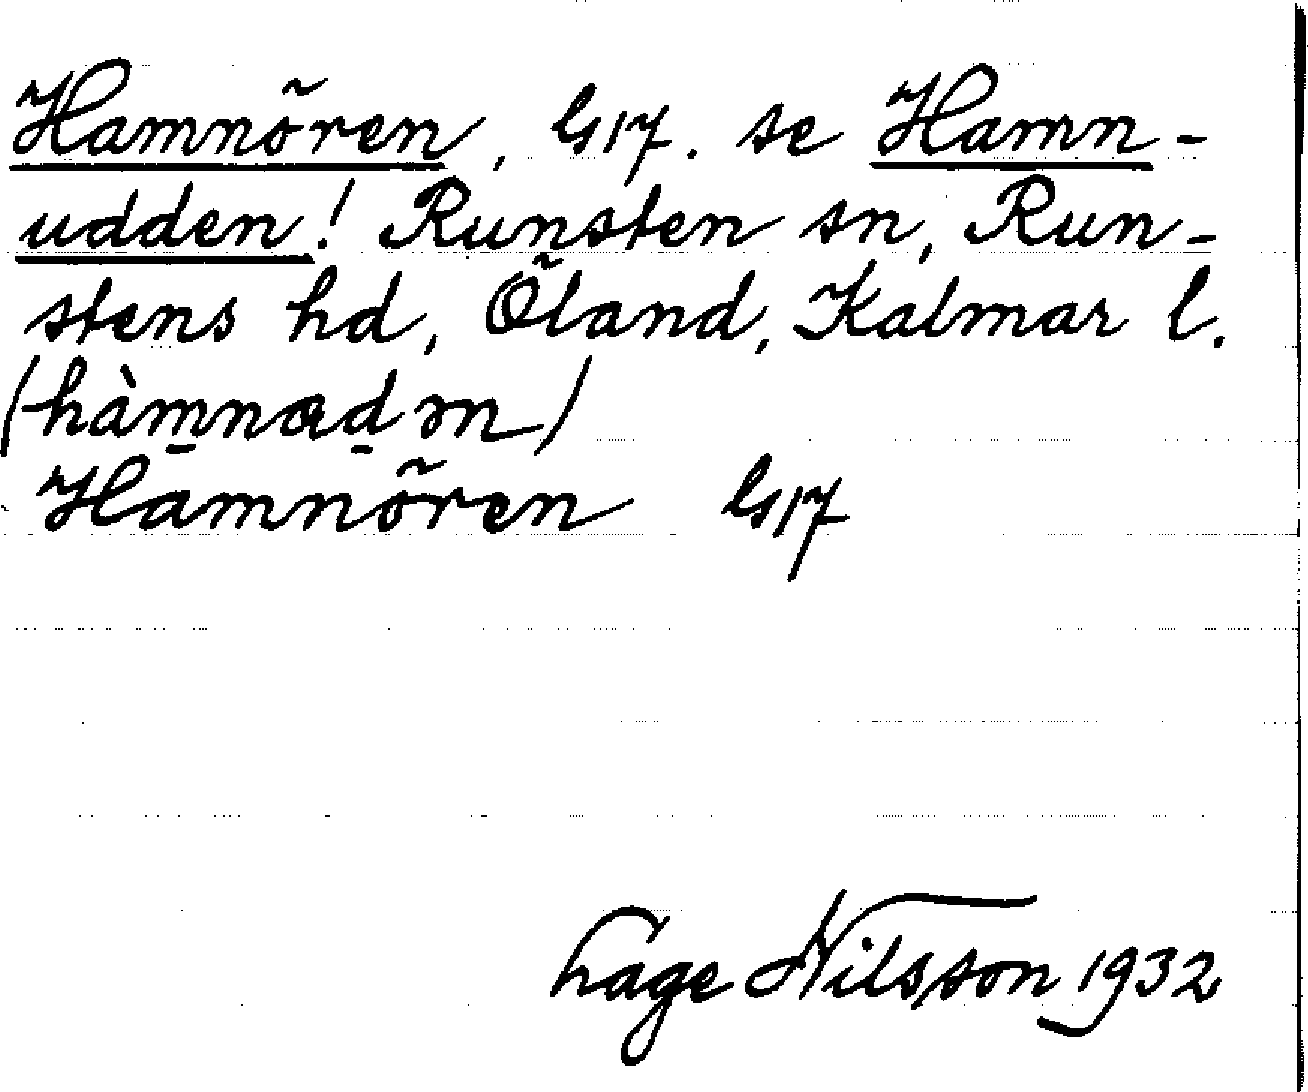 Hamnören, G17. se Hamn-
udden! Runsten sn, Run-
stens hd, Öland, Kalmar l.
(hàmnadən)
Hamnören G17
Hage Nilsson 1932